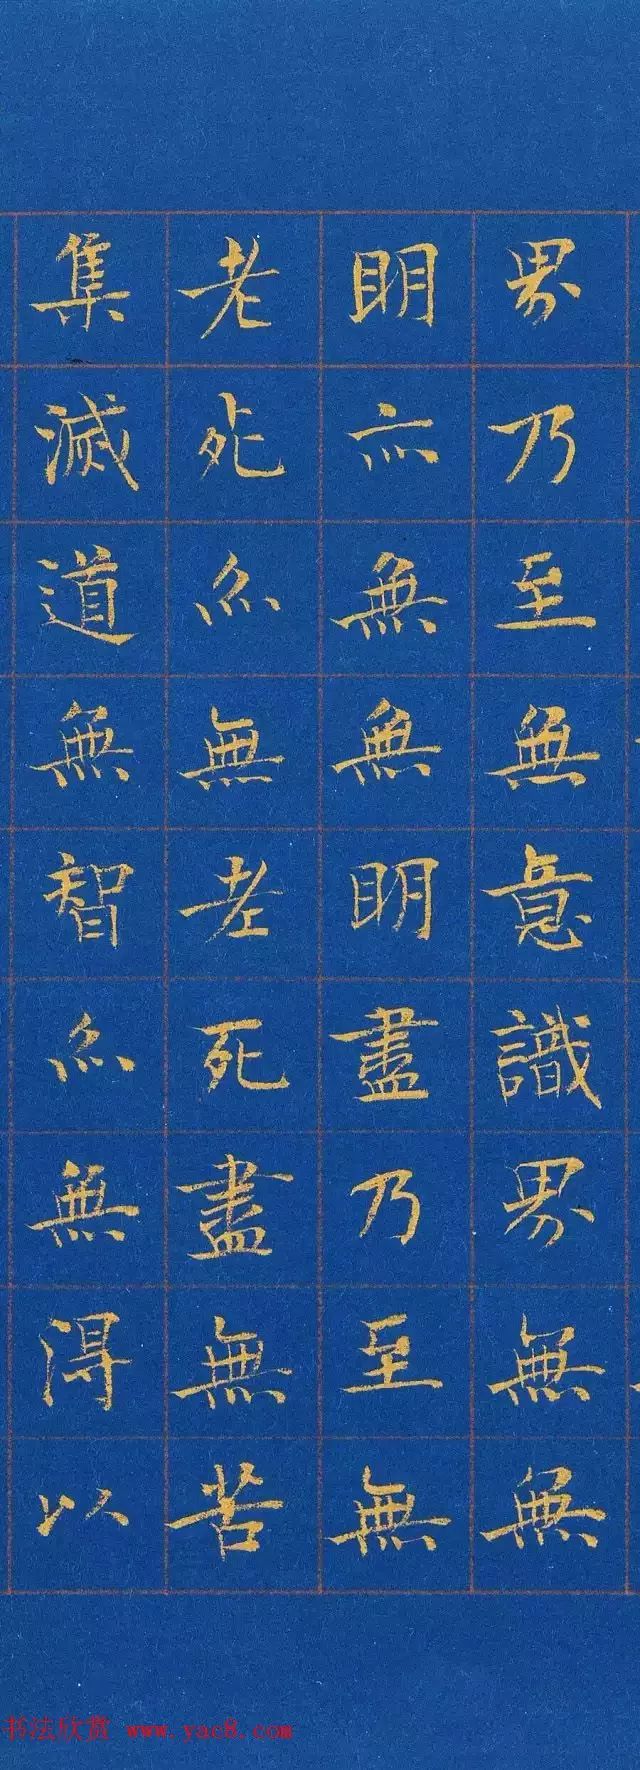 界乃至無意識界無無
明亦無無明盡乃至無
老死亦無老死盡無苦
集滅道無智亦無得以
书法欣赏 www.yac8.com